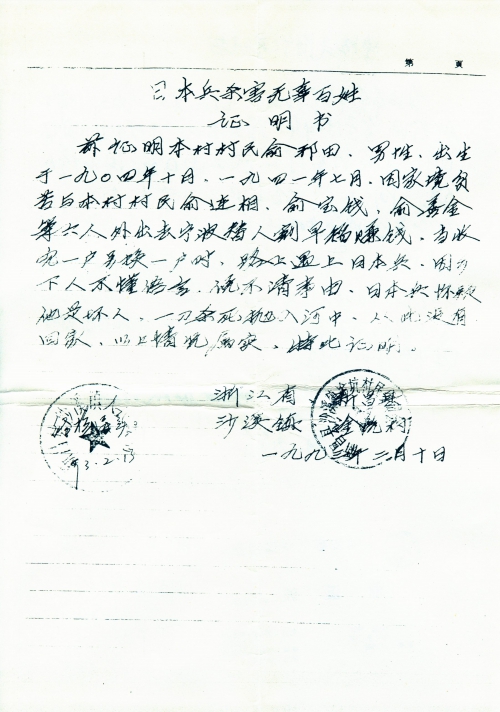 第 頁
日本兵杀害无辜百姓
证明书
兹证明本村村民俞邦由、男性、出生
于一九〇四年十月、一九四一年七月、因家境贫
苦与本村村民俞进相、俞宝钱、俞善金
等六人外出去宁波替人割早稻赚钱、当收
完一户另换一户时、路上遇上日本兵、因乡
下人不懂语言、说不清事由、日本兵怀疑
他是坏人、一刀杀死抛入河中、从此没有
回家、以上情况属实、特此证明。
浙江省 新昌县
沙溪镇 金坑村
一九九三年二月十日
情况属实
93.2.13